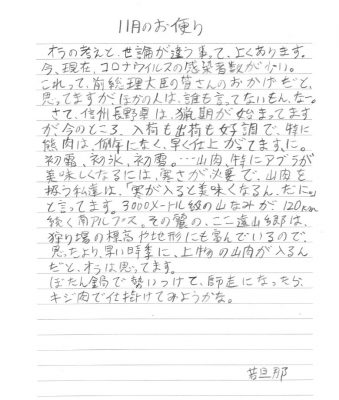 11月のお便り
オラの考えと、世論が違う事って、よくあります。
今、現在、コロナウイルスの感染者数が少い。
これって、前総理大臣の菅さんのおかげだと、
思ってますが、ほかの人は、誰も言ってないもんな〜。
さて、信州長野県は、猟期が始まってます
が、今のところ、入荷も出荷も好調で、特に
熊肉は、例年になく、早く仕上がってますに。
初霜、初氷、初雪。…山肉、特にアブラが
美味しくなるには、寒さが必要で、山肉を
扱う私達は、「実が入ると美味くなるん、だに。」
と言ってます。3000メートル級の山なみが、120km
続く南アルプス。その麓の、ここ遠山郷は、
狩り場の標高や地形にも富んでいるので、
思ったより、早い時季に、上物の山肉が入るん
だと、オラは思ってます。
ぼたん鍋で勢いつけて、師走になったら、
キジ肉で仕掛けてみようかな。
若旦那